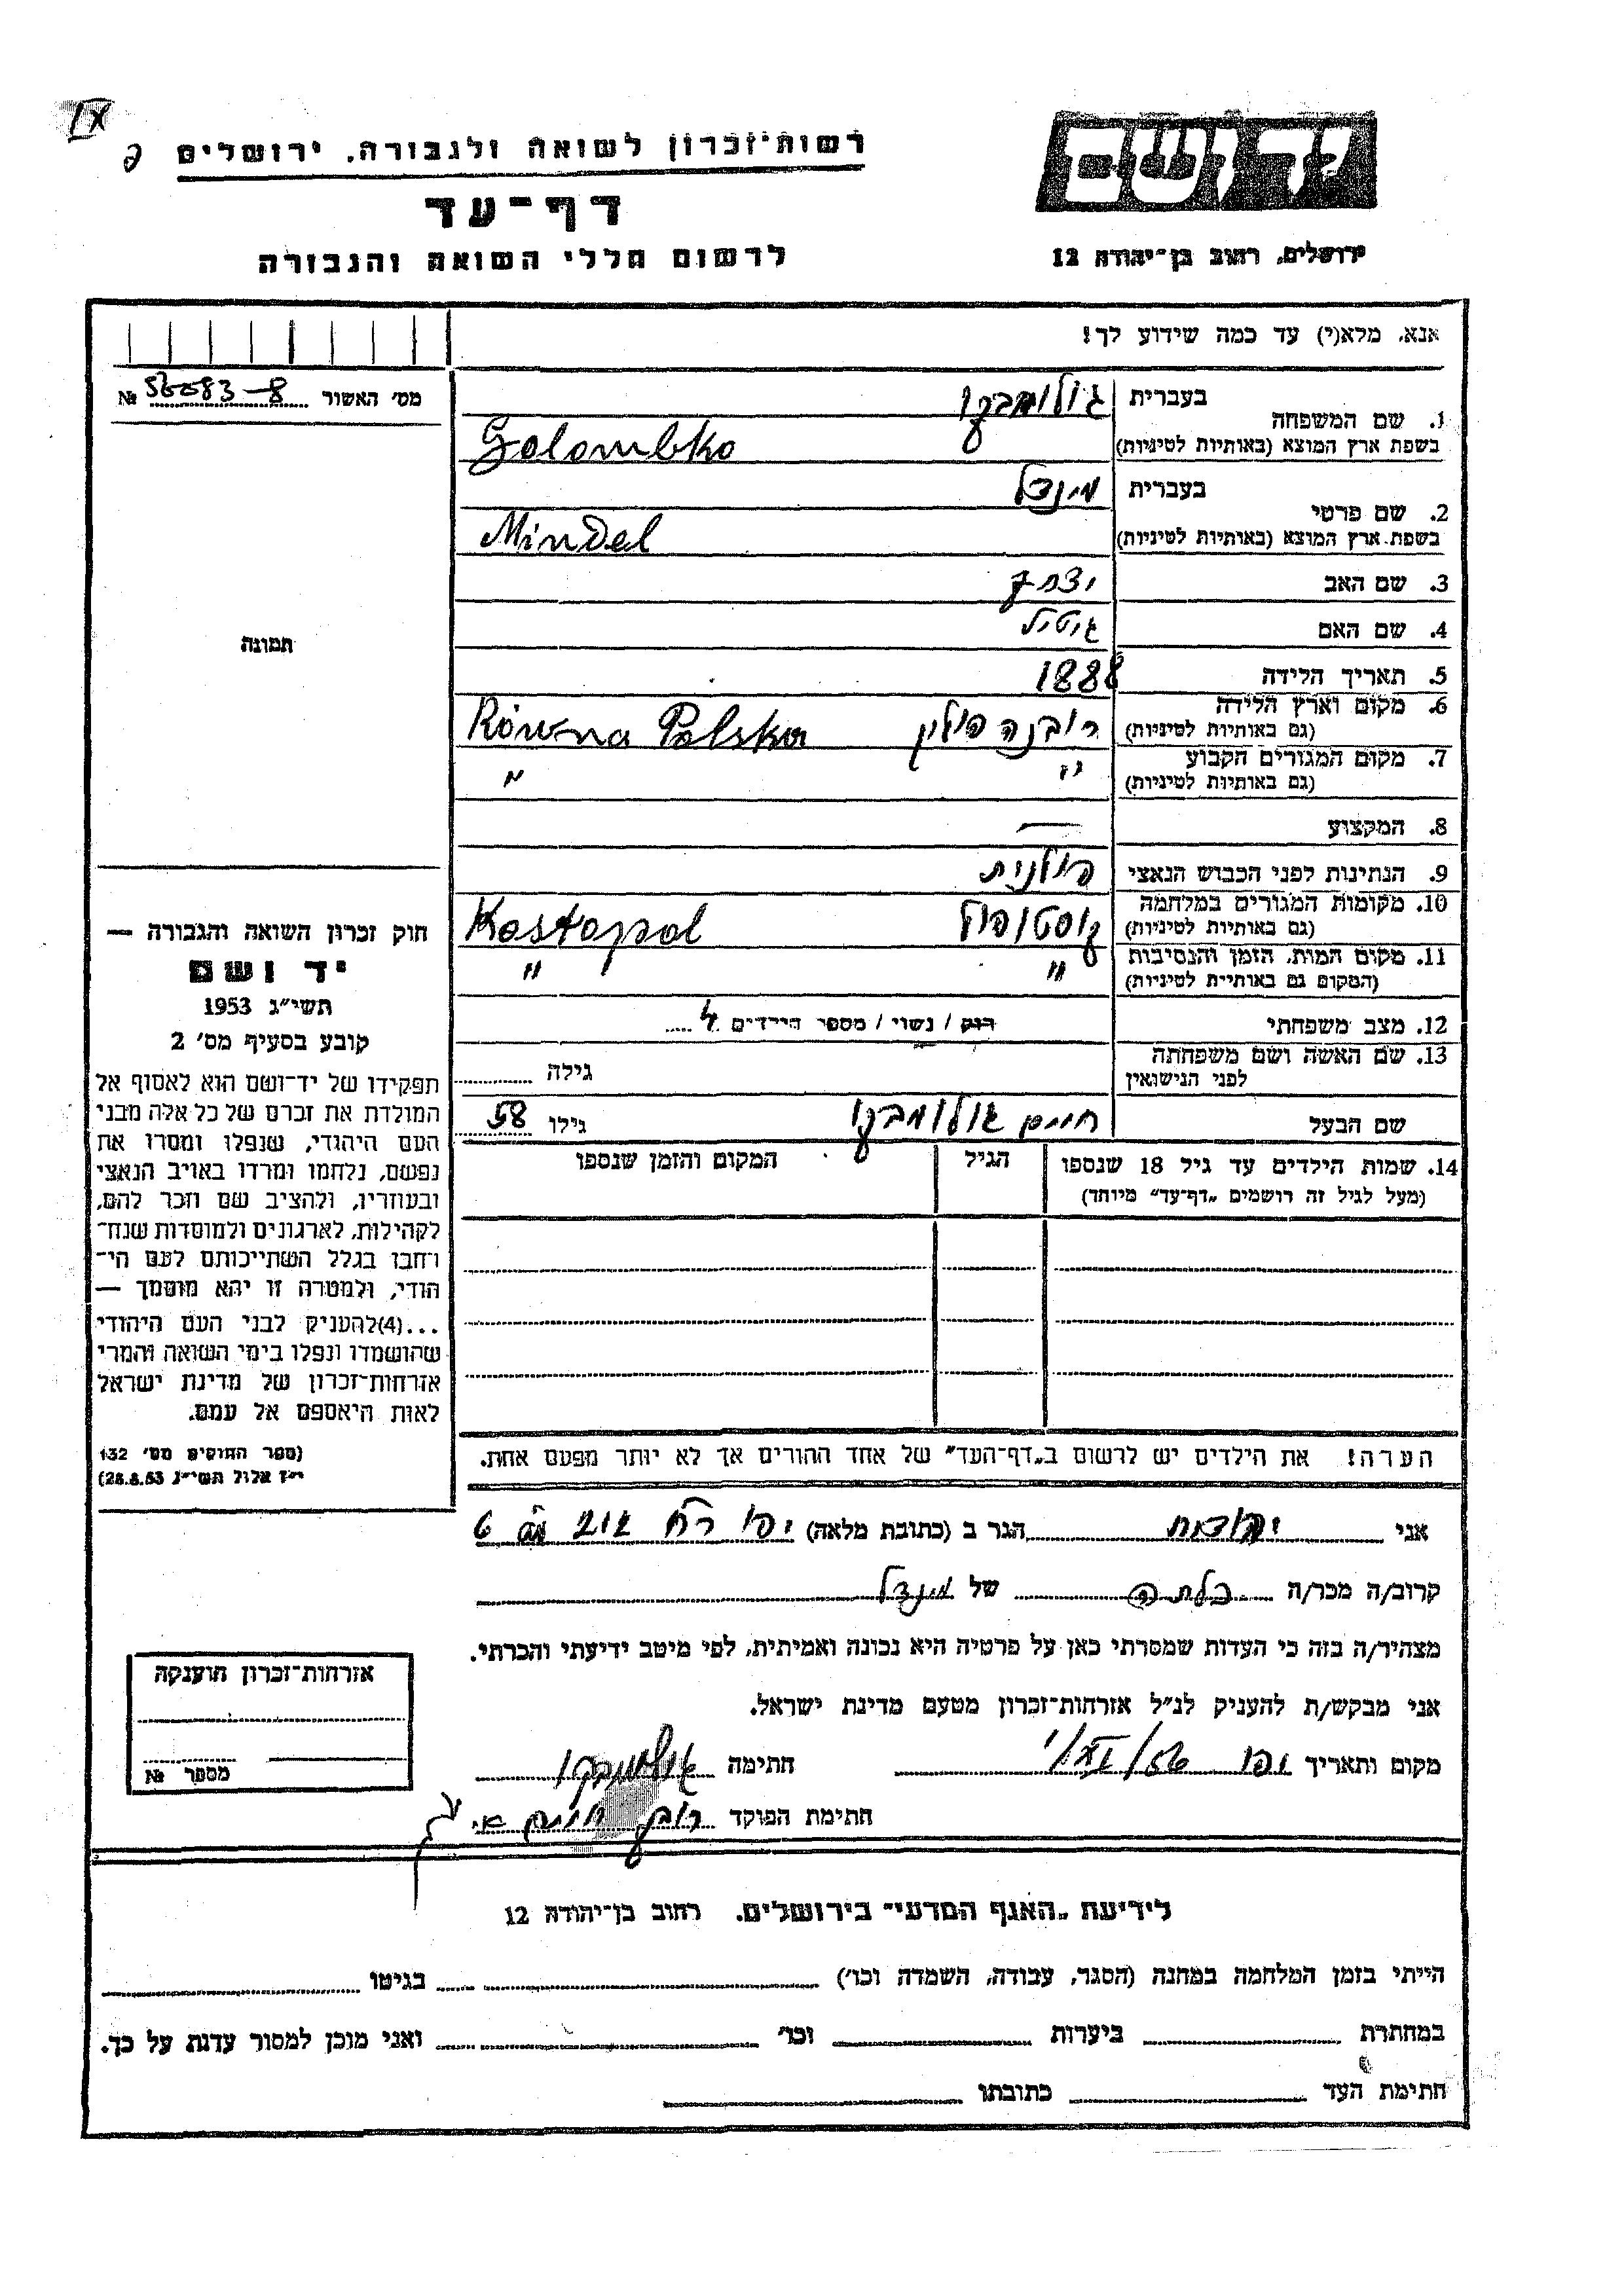 רשות־זכרון לשואה ולגבורה, ירושלים
דף־עד
לרשום חללי השואה והגבורה
יד ושם
ירושלים, רחוב בן־יהודה 12
אנא, מלא(י) עד כמה שידוע לך!
מס׳ האשור № 56083-8
1. שם המשפחה
בעברית גולומבקו
בשפת ארץ המוצא (באותיות לטיניות) Golombko
2. שם פרטי
בעברית מינדל
בשפת ארץ המוצא (באותיות לטיניות) Mindel
3. שם האב יצחק
4. שם האם גיטיל
5. תאריך הלידה 1888
6. מקום וארץ הלידה רובנה פולין Równa Polska
(גם באותיות לטיניות)
7. מקום המגורים הקבוע " "
(גם באותיות לטיניות)
8. המקצוע —
9. הנתינות לפני הכבוש הנאצי פולנית
10. מקומות המגורים במלחמה קוסטופול Kostopol
(גם באותיות לטיניות)
11. מקום המות, הזמן והנסיבות " "
(המקום גם באותיות לטיניות)
12. מצב משפחתי רווק / נשוי / מספר הילדים 4
13. שם האשה ושם משפחתה
לפני הנישואין גילה
שם הבעל חיים גולומבקו גילו 58
14. שמות הילדים עד גיל 18 שנספו הגיל המקום והזמן שנספו
(מעל לגיל זה רושמים „דף־עד" מיוחד)
הערה! את הילדים יש לרשום ב„דף־העד" של אחד ההורים אך לא יותר מפעם אחת.
תמונה
חוק זכרון השואה והגבורה —
יד ושם
תשי״ג 1953
קובע בסעיף מס׳ 2
תפקידו של יד־ושם הוא לאסוף אל
המולדת את זכרם של כל אלה מבני
העם היהודי, שנפלו ומסרו את
נפשם, נלחמו ומרדו באויב הנאצי
ובעוזריו, ולהציב שם וזכר להם,
לקהילות, לארגונים ולמוסדות שנח־
רבו בגלל השתייכותם לעם הי־
הודי, ולמטרה זו יהא מוסמך —
...(4)להעניק לבני העם היהודי
שהושמדו ונפלו בימי השואה והמרי
אזרחות־זכרון של מדינת ישראל
לאות היאספם אל עמם.
(ספר החוקים מס׳ 132
י״ז אלול תשי״ג 28.8.53)
אני יהודית הגר ב (כתובת מלאה) יפו רח׳ 212 מס 6
קרוב/ה מכר/ה כלתה של מינדל
מצהיר/ה בזה כי העדות שמסרתי כאן על פרטיה היא נכונה ואמיתית, לפי מיטב ידיעתי והכרתי.
אני מבקש/ת להעניק לנ״ל אזרחות־זכרון מטעם מדינת ישראל.
מקום ותאריך יפו 1/XI/56 חתימה גולומבקו
חתימת הפוקד
אזרחות־זכרון הוענקה
מספר №
לידיעת „האגף המדעי" בירושלים, רחוב בן־יהודה 12
הייתי בזמן המלחמה במחנה (הסגר, עבודה, השמדה וכו׳) בגיטו
במחתרת ביערות וכו׳ ואני מוכן למסור עדות על כך.
חתימת העד כתובתו